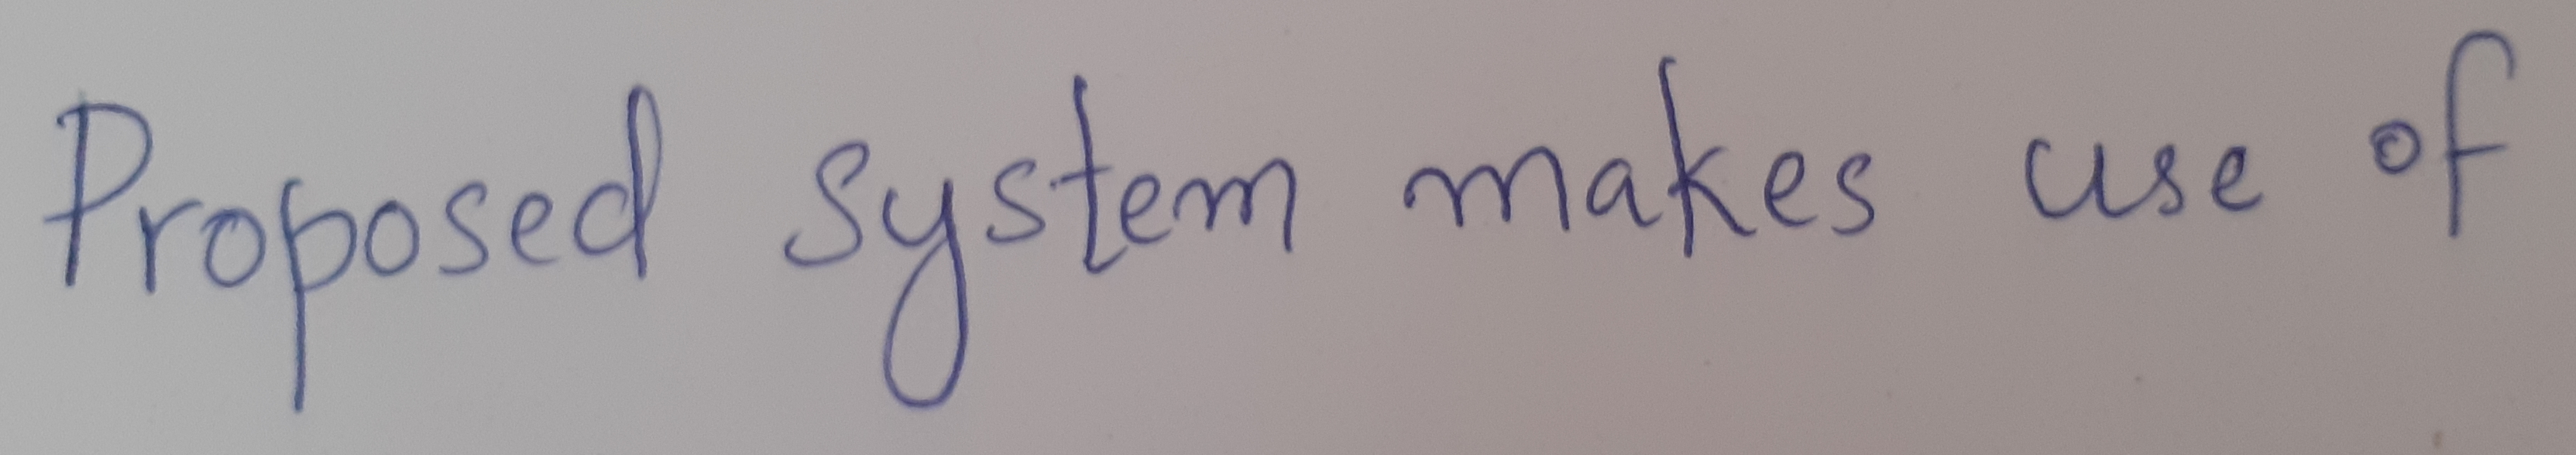 Proposed system makes use of